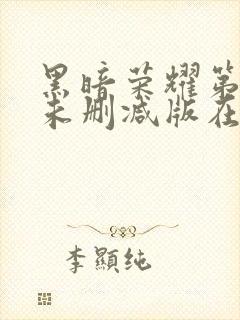 黑暗荣耀第
未删减版在
李顯纯